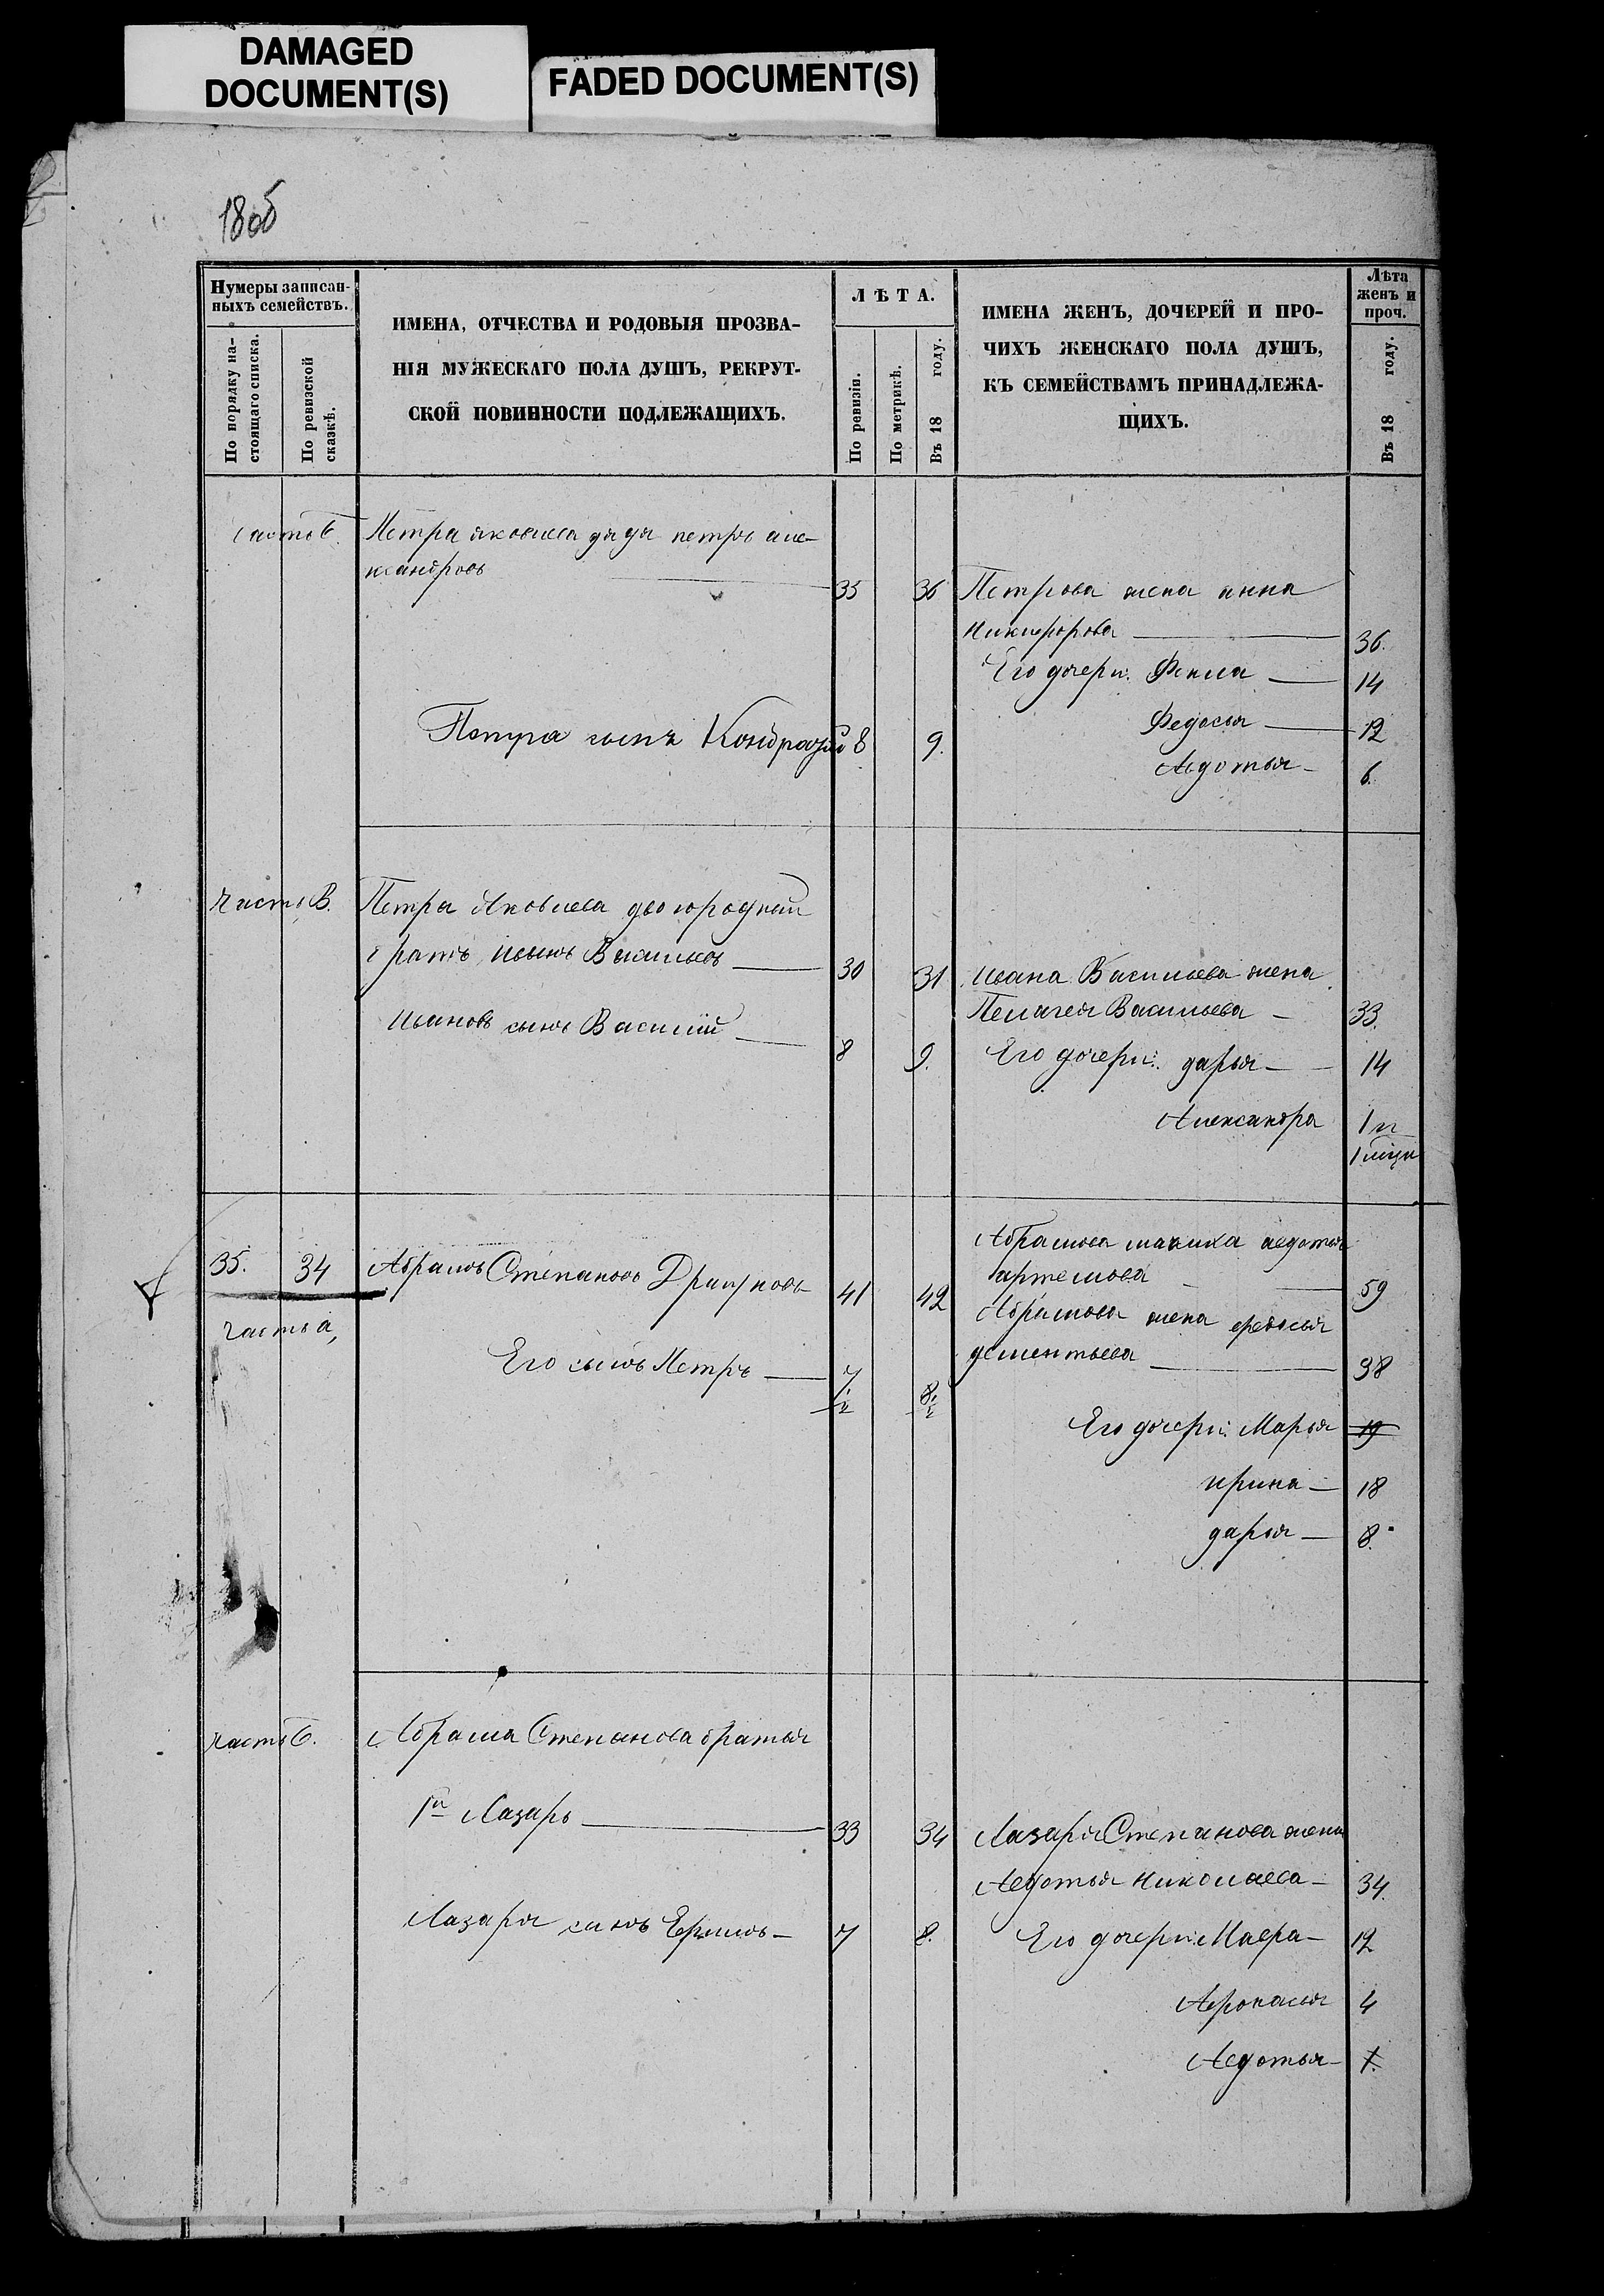 DAMAGED
DOCUMENT(S)
FADED DOCUMENT(S)
180об
Нумеры записан-
ныхъ семействъ.
По порядку на-
стоящаго списка.
По ревизской
сказкѣ.
ИМЕНА, ОТЧЕСТВА И РОДОВЫЯ ПРОЗВА-
НІЯ МУЖЕСКАГО ПОЛА ДУШЪ, РЕКРУТ-
СКОЙ ПОВИННОСТИ ПОДЛЕЖАЩИХЪ.
ЛѢТА.
По ревизіи.
По метрикѣ.
Въ 18 году.
ИМЕНА ЖЕНЪ, ДОЧЕРЕЙ И ПРО-
ЧИХЪ ЖЕНСКАГО ПОЛА ДУШЪ,
КЪ СЕМЕЙСТВАМЪ ПРИНАДЛЕЖА-
ЩИХЪ.
Лѣта
женъ и
проч.
Въ 18 году.
часть б. Петра яковлева дядя петръ але-
ксандровъ 35 36 Петрова жена анна
Никифорова 36.
Его дочери: Фекла 14
Петра сынъ Кондратій 8 9. Федосья 12
Авдотья 6.
часть В. Петра Яковлева двоюродный
братъ иванъ Васильевъ 30 31 Ивана Васильева жена
Пелагея Васильева 33.
Ивановъ сынъ Василій 8 9. Его дочери: дарья 14
Александра 1 и
Абрамова мачиха авдотья
35. 34 Абрамъ Степановъ 41 42 артемова 59
часть а, Абрамова жена федосья
дементьева 38
Его сынъ Петръ 7 8
Его дочери: Марья 19
ирина 18
дарья 8.
часть б. Абрама Степанова братья
1й Лазарь 33 34 Лазаря Степанова жена
Авдотья николаева 34.
Лазаря сынъ Ефимъ 7 8. Его дочери: Мавра 12
Афонасья 4
Авдотья 1.